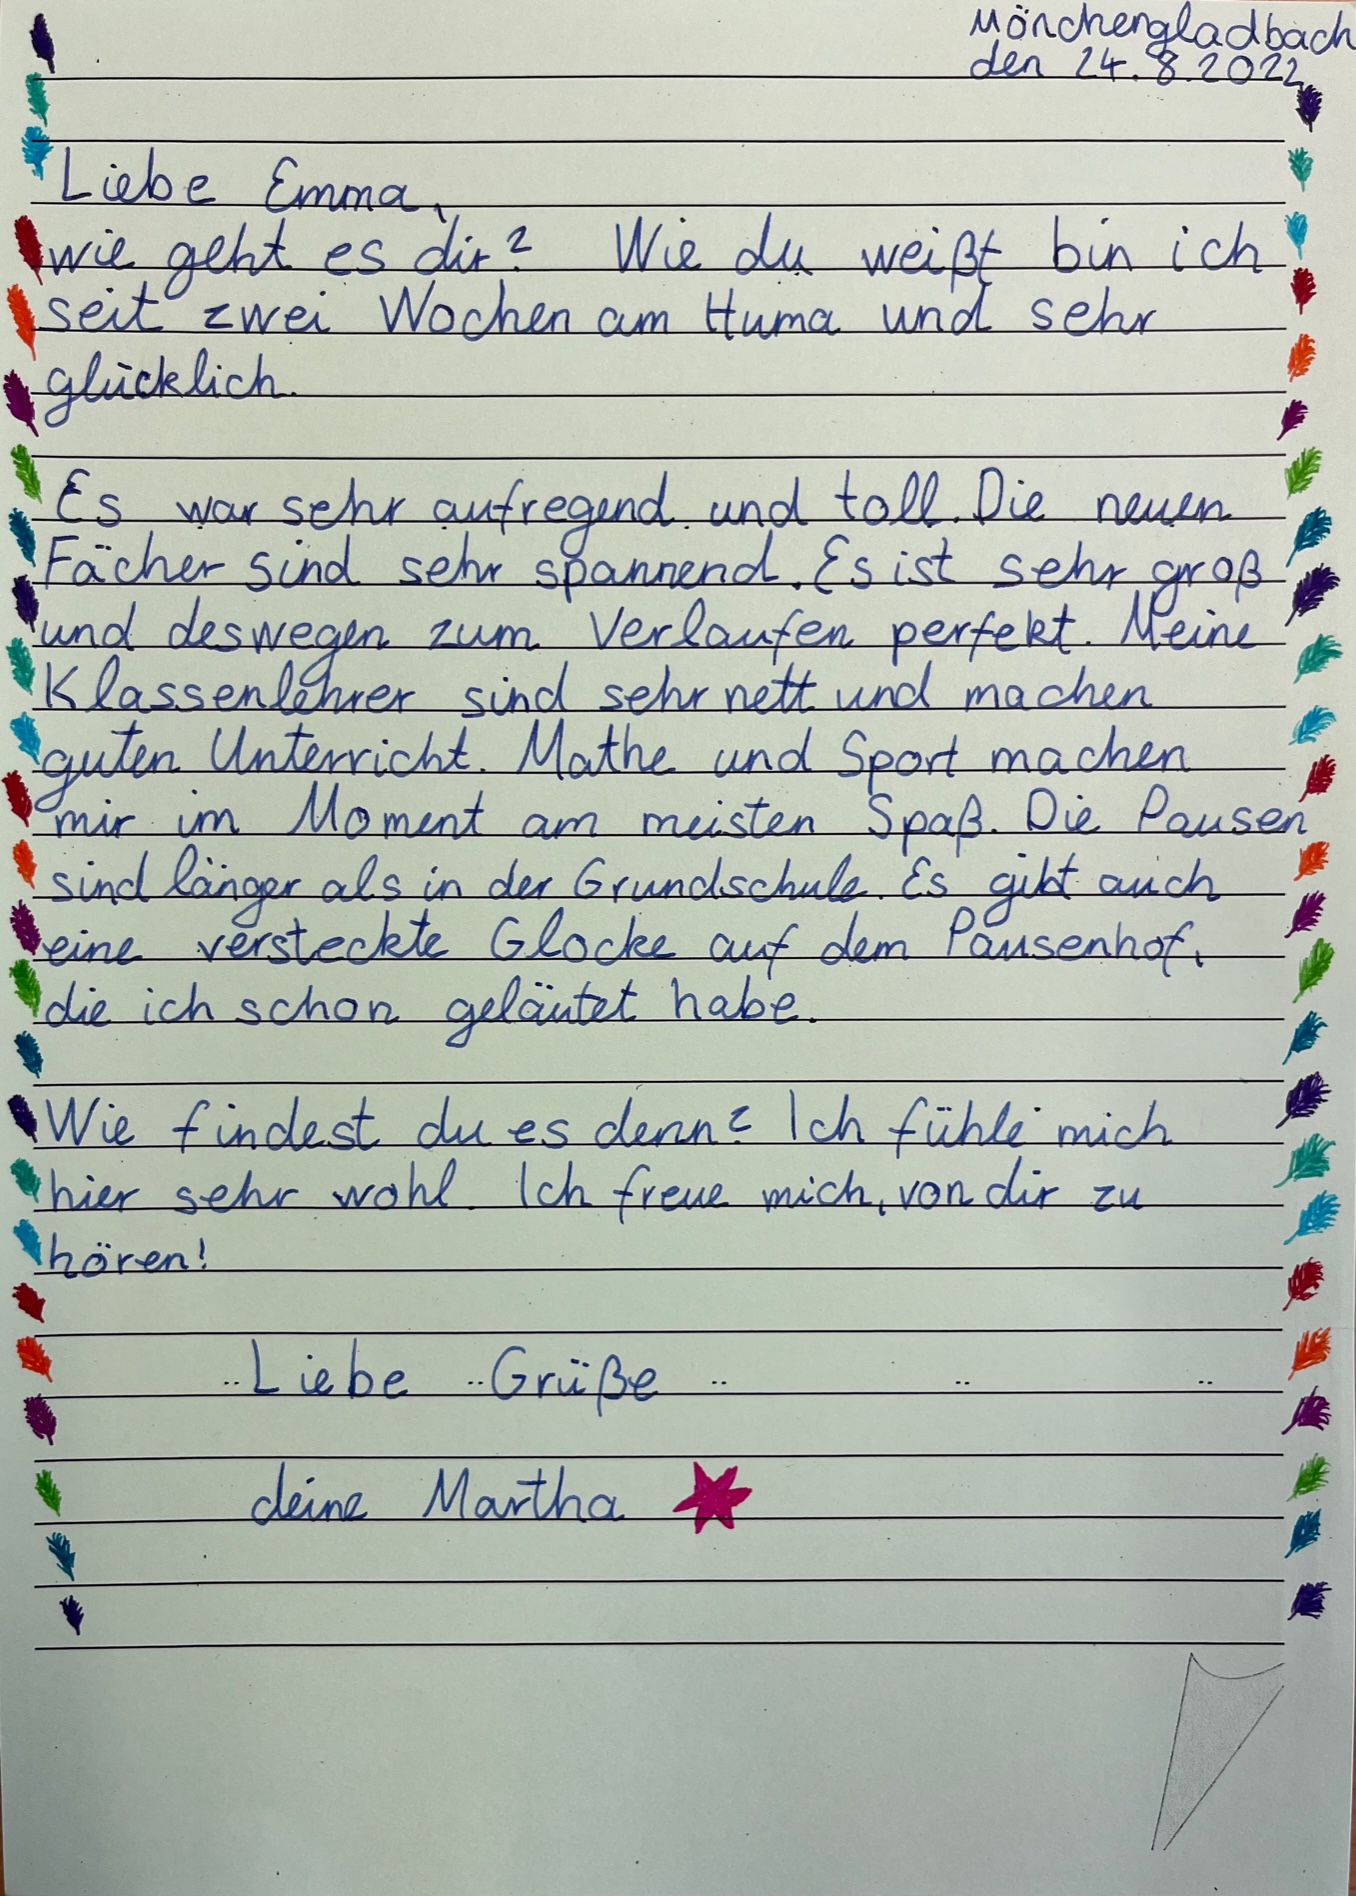 Mönchengladbach
den 24.8.2022
Liebe Emma,
wie geht es dir? Wie du weißt bin ich
seit zwei Wochen am Huma und sehr
glücklich.
Es war sehr aufregend und toll. Die neuen
Fächer sind sehr spannend. Es ist sehr groß
und deswegen zum Verlaufen perfekt. Meine
Klassenlehrer sind sehr nett und machen
guten Unterricht. Mathe und Sport machen
mir im Moment am meisten Spaß. Die Pausen
sind länger als in der Grundschule. Es gibt auch
eine versteckte Glocke auf dem Pausenhof,
die ich schon geläutet habe.
Wie findest du es denn? Ich fühle mich
hier sehr wohl. Ich freue mich, von dir zu
hören!
Liebe Grüße
deine Martha